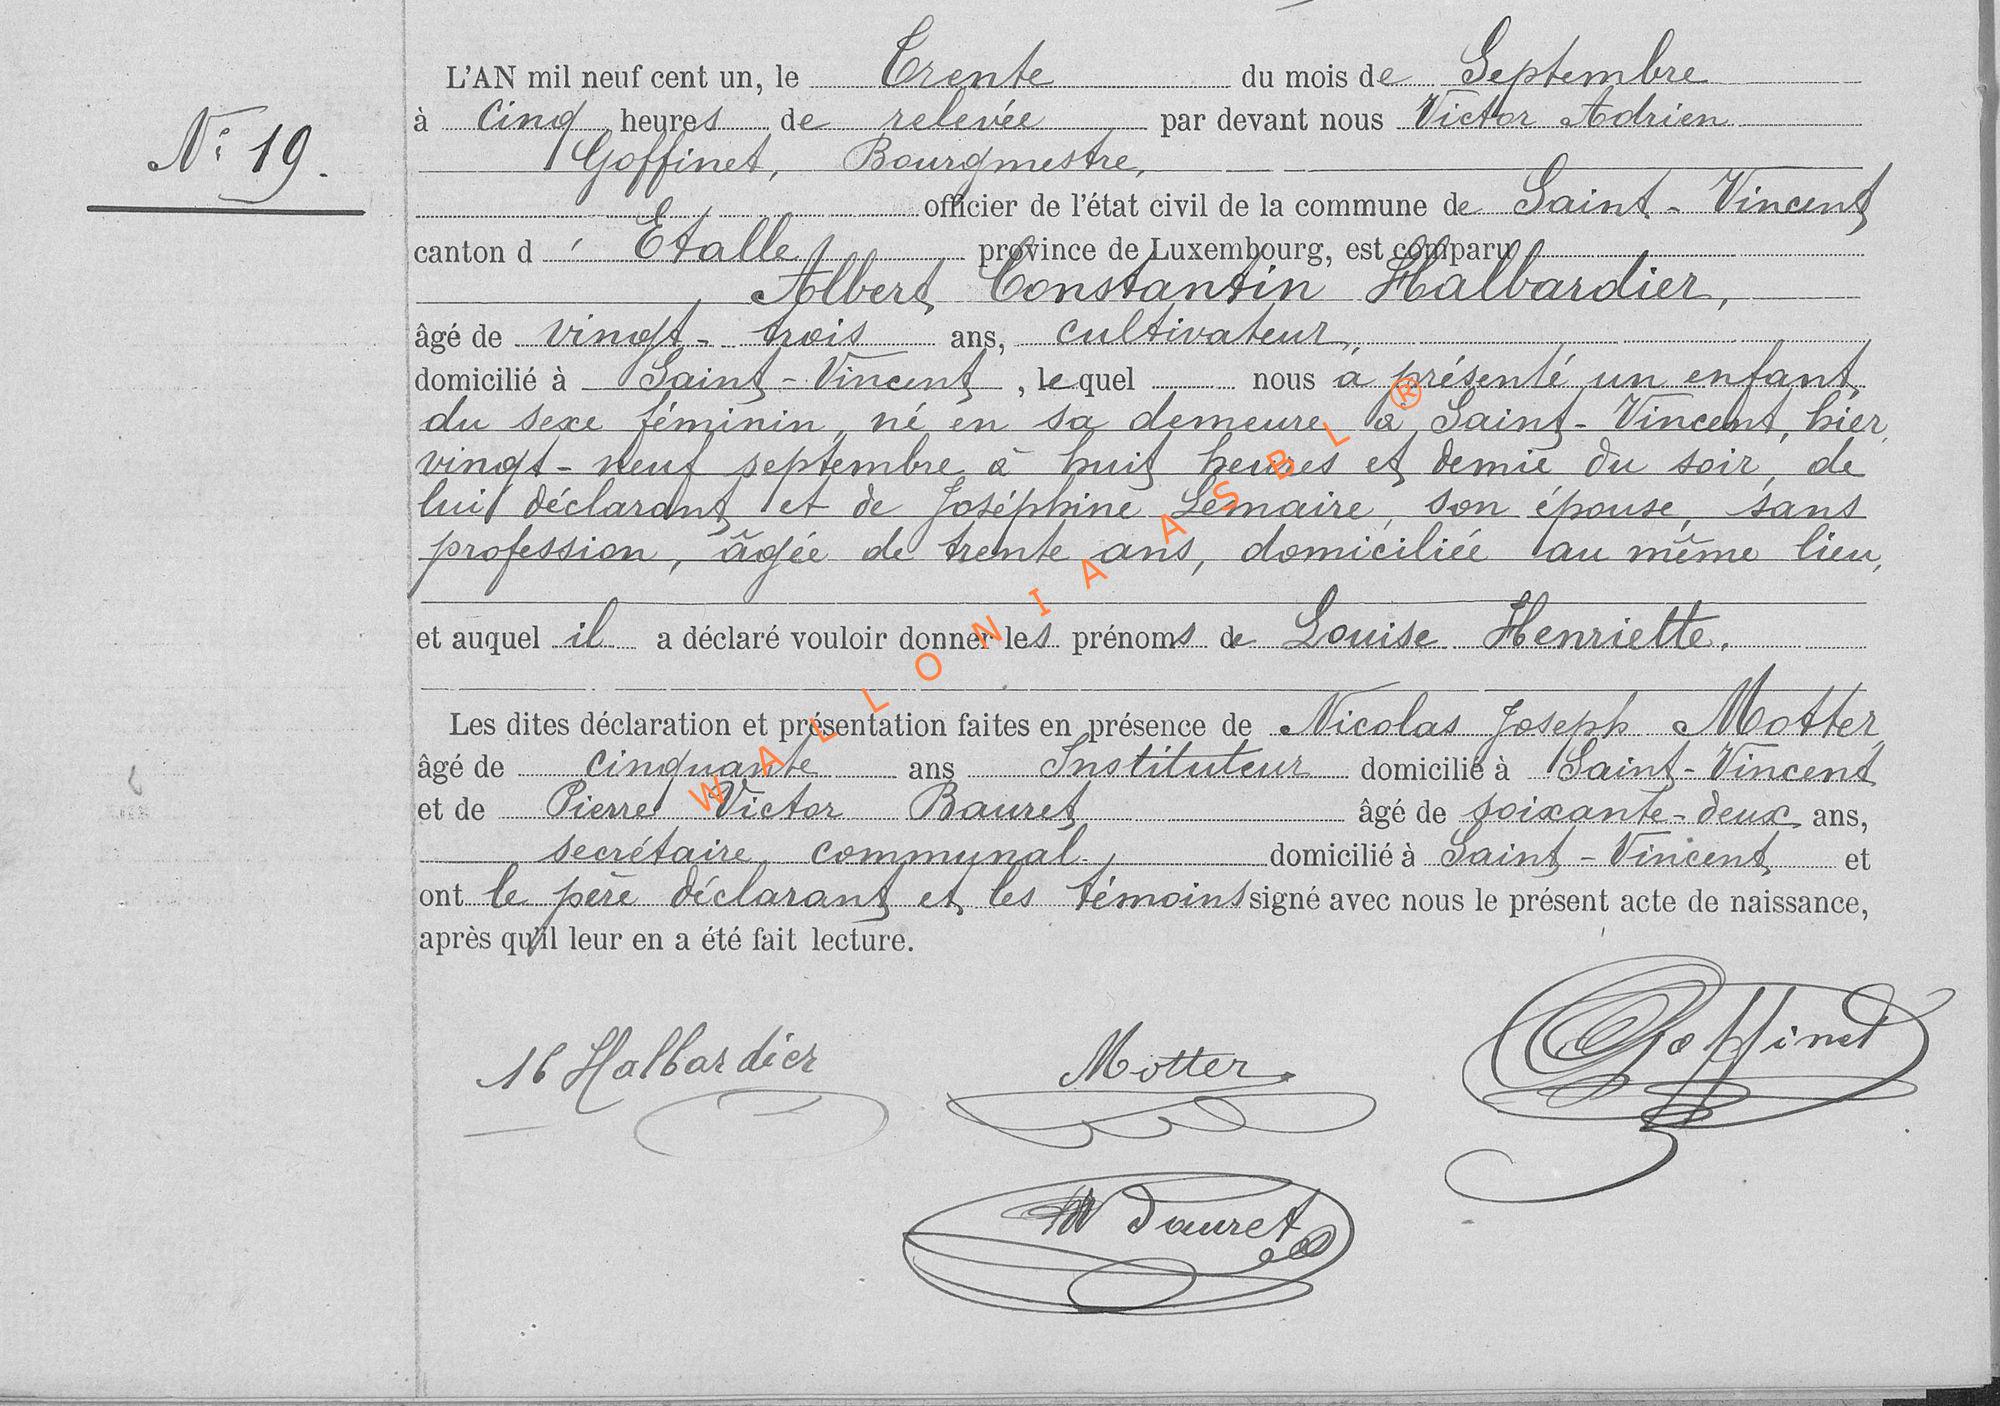 N° 19.
L'AN mil neuf cent un, le Trente du mois de Septembre
à cinq heures de relevée par devant nous Victor Adrien
Goffinet, Bourgmestre,
officier de l'état civil de la commune de Saint-Vincent
canton d'Etalle province de Luxembourg, est comparu
Albert Constantin Halbardier,
âgé de vingt-trois ans, cultivateur,
domicilié à Saint-Vincent, lequel nous a présenté un enfant
du sexe féminin, né en sa demeure à Saint-Vincent, hier
vingt-neuf septembre à huit heures et demie du soir, de
lui déclarant et de Joséphine Lemaire, son épouse, sans
profession, âgée de trente ans, domiciliée au même lieu,
et auquel il a déclaré vouloir donner les prénoms de Louise Henriette.
Les dites déclaration et présentation faites en présence de Nicolas Joseph Motter,
âgé de cinquante ans Instituteur domicilié à Saint-Vincent
et de Pierre Victor Bauret âgé de soixante-deux ans,
secrétaire communal, domicilié à Saint-Vincent et
ont le père déclarant et les témoins signé avec nous le présent acte de naissance,
après qu'il leur en a été fait lecture.
Halbardier Motter Goffinet
Bauret
WALLONIA ASBL ®